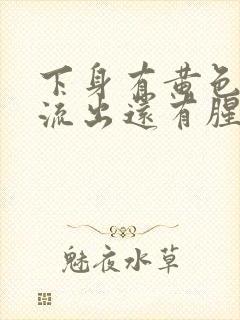 下身有黄色
流出还有腥
魅夜水草